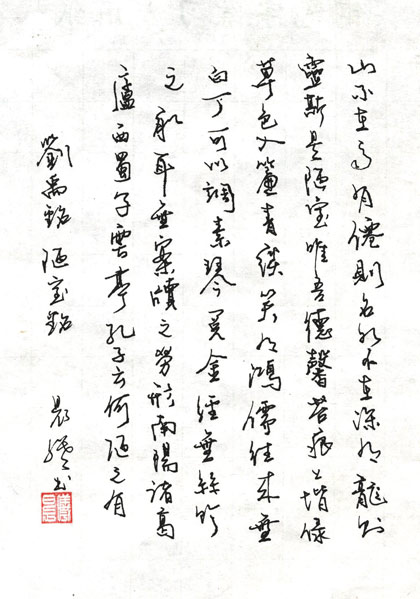 山不在高有僊則名水不在深有龍則
靈斯是陋室唯吾德馨苔痕上堦綠
草色入簾青談笑有鴻儒往來無
白丁可以調素琴閱金經無絲竹
之亂耳無案牘之勞形南陽諸葛
廬西蜀子雲亭孔子云何陋之有
劉禹錫 陋室銘 書